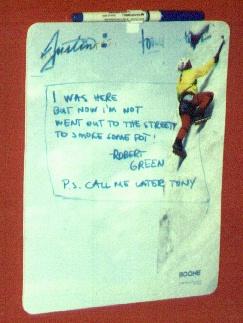 Justin:
I WAS HERE
BUT NOW I'M NOT
WENT OUT TO THE STREETS
TO SMOKE SOME POT!
-ROBERT
GREEN
P.S. CALL ME LATER, TONY